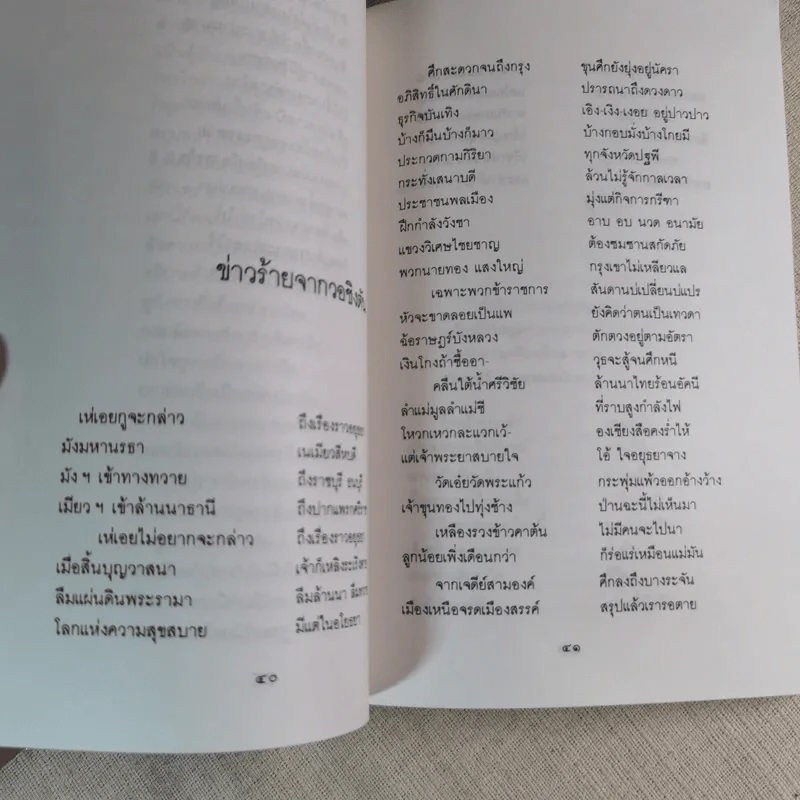 ข่าวร้ายจากวอชิงตัน
เห่เอยกูจะกล่าว ถึงเรื่องราวอยุธยา
มังมหานรธา เนเมียวสีหบดี
มัง ฯ เข้าทางทวาย ถึงราชบุรี ธนบุรี
เมียว ฯ เข้าล้านนาธานี ถึงปากแพรก
เห่เอยไม่อยากจะกล่าว ถึงเรื่องราวอยุธยา
เมื่อสิ้นบุญวาสนา เจ้าก็เหลิงระเริง
ลืมแผ่นดินพระรามา ลืมล้านนา
โลกแห่งความสุขสบาย มีแต่ในอโยธยา
๔๐
ศึกสะดวกจนถึงกรุง ขุนศึกยังยุ่งอยู่นัครา
อภิสิทธิ์ในศักดินา ปรารถนาถึงดวงดาว
ธุรกิจบันเทิง เอิง-เงิง-เงอย อยู่ปาวปาว
บ้างก็มึนบ้างก็มาว บ้างกอบมั่งบ้างโกยมี
ประกวดกามกิริยา ทุกจังหวัดปฐพี
กระทั่งเสนาบดี ล้วนไม่รู้จักกาลเวลา
ประชาชนพลเมือง มุ่งแต่กิจการกรีฑา
ฝึกกำลังวังชา อาบ อบ นวด อนามัย
แขวงวิเศษไชยชาญ ต้องซมซานสกัดภัย
พวกนายทอง แสงใหญ่ กรุงเขาไม่เหลียวแล
เฉพาะพวกข้าราชการ สันดานบ่เปลี่ยนบ่แปร
หัวจะขาดลอยเป็นแพ ยังคิดว่าตนเป็นเทวดา
ฉ้อราษฎร์บังหลวง ตักตวงอยู่ตามอัตรา
เงินโกงถ้าซื้ออา- วุธจะสู้จนศึกหนี
คลื่นใต้น้ำศรีวิชัย ล้านนาไทยร้อนอัคนี
ลำแม่มูลลำแม่ชี ที่ราบสูงกำลังไฟ
โหวกเหวกละแวกเว้- องเชียงสือคงร่ำไห้
แต่เจ้าพระยาสบายใจ โอ้ ใจอยุธยาจาง
วัดเอ๋ยวัดพระแก้ว กระพุ่มแพ้วออกอ้างว้าง
เจ้าขุนทองไปทุ่งช้าง ป่านฉะนี้ไม่เห็นมา
เหลืองรวงข้าวคาต้น ไม่มีคนจะไปนา
ลูกน้อยเพิ่งเดือนกว่า ก็ร่อแร่เหมือนแม่มัน
จากเจดีย์สามองค์ ศึกลงถึงบางระจัน
เมืองเหนือจรดเมืองสรรค์ สรุปแล้วเรารอตาย
๔๑